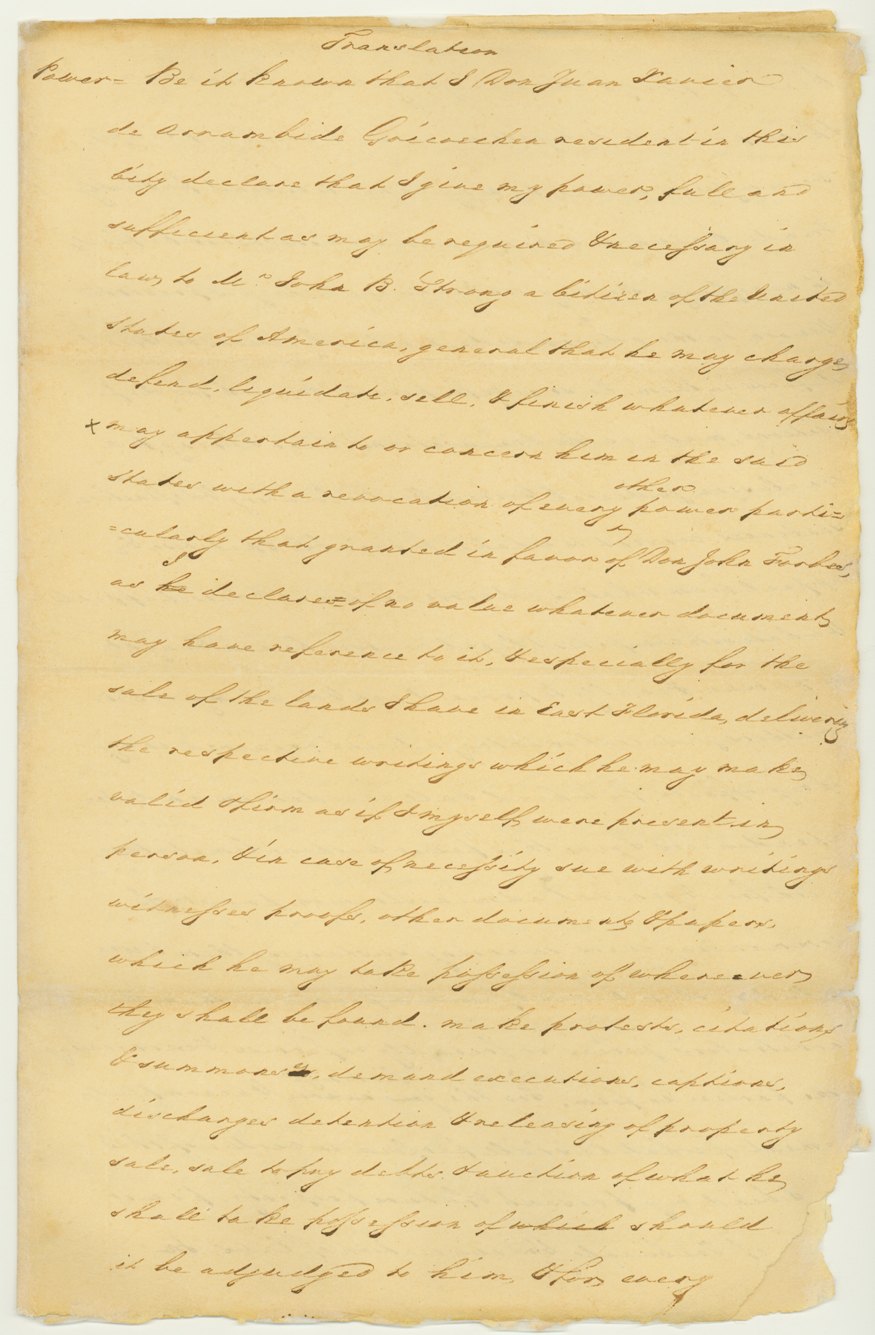 Translation
Power= Be it known that I Don Juan Xavier
de Arrambide Goicoechea resident in this
City declare that I give my power, full and
sufficient as may be required & necessary in
law, to Mr John B. Strong a Citizen of the United
States of America, general that he may charge,
defend, liquidate, sell, & finish whatever affairs
x may appertain to or concern him in the said
other
States with a revocation of every power parti=
=cularly that granted in favor of Don John Forbes,
I
as he declare= of no value whatever documents
may have reference to it, & especially for the
sale of the lands I have in East Florida, delivering
the respective writings which he may make,
valid & firm as if I myself were present in
person, & in case of necessity sue with writings
witnesses proofs, other documents & papers,
which he may take possession of whereever
they shall be found. make protests, citations
& summons, demand executions, captions,
discharges detention & releasing of property
sale, sale to pay debts & auction of what he
shall take possession of which should
it be adjudged to him, & for every